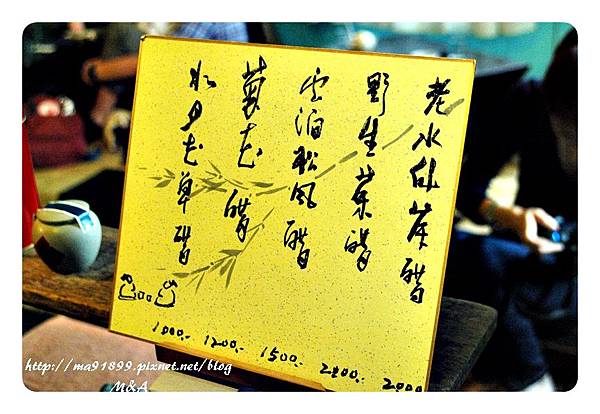 老水仙茶醋
野生茶醋
雲泊松風醋
菊花醋
水月老草醋
1000.- 1200.- 1500.- 2200.- 2000.-
http://ma91899.pixnet.net/blog
M&A